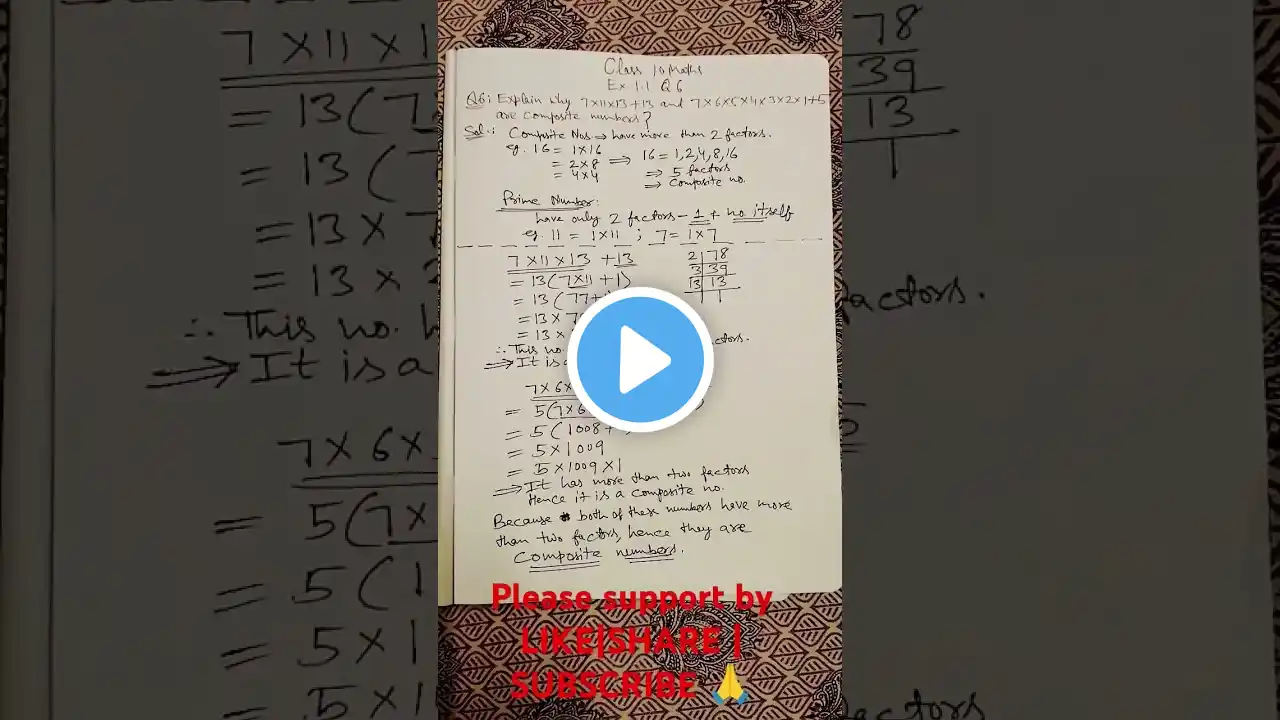 Class 10 Maths
Ex 1.1 Q6
Q6: Explain why 7×11×13+13 and 7×6×5×4×3×2×1+5
are composite numbers?
Sol: Composite Nos → have more than 2 factors.
eg. 16 = 1×16
= 2×8 ⇒ 16 = 1,2,4,8,16
= 4×4 ⇒ 5 factors
⇒ Composite no.
Prime Number:
have only 2 factors - 1 + no. itself
eg. 11 = 1×11 ; 7 = 1×7
7×11×13 +13
= 13(7×11+1)
= 13(77+
= 13×7
= 13×
∴ This no. factors.
⇒ It is a
2 78
3 39
13 13
1
7×6×
= 5(7×6
= 5(1008+
= 5×1009
= 5×1009×1
⇒ It has more than two factors
Hence it is a composite no.
Because both of these numbers have more
than two factors, hence they are
Composite numbers.
Please support by
LIKE|SHARE |
SUBSCRIBE 🙏
7×11×1
= 13(7
= 13(7
= 13×7
= 13×2
∴ This no. h
⇒ It is a
7×6×
= 5(7×
= 5(1
= 5×1
= 5×1
78
39
13
1
factors.
5